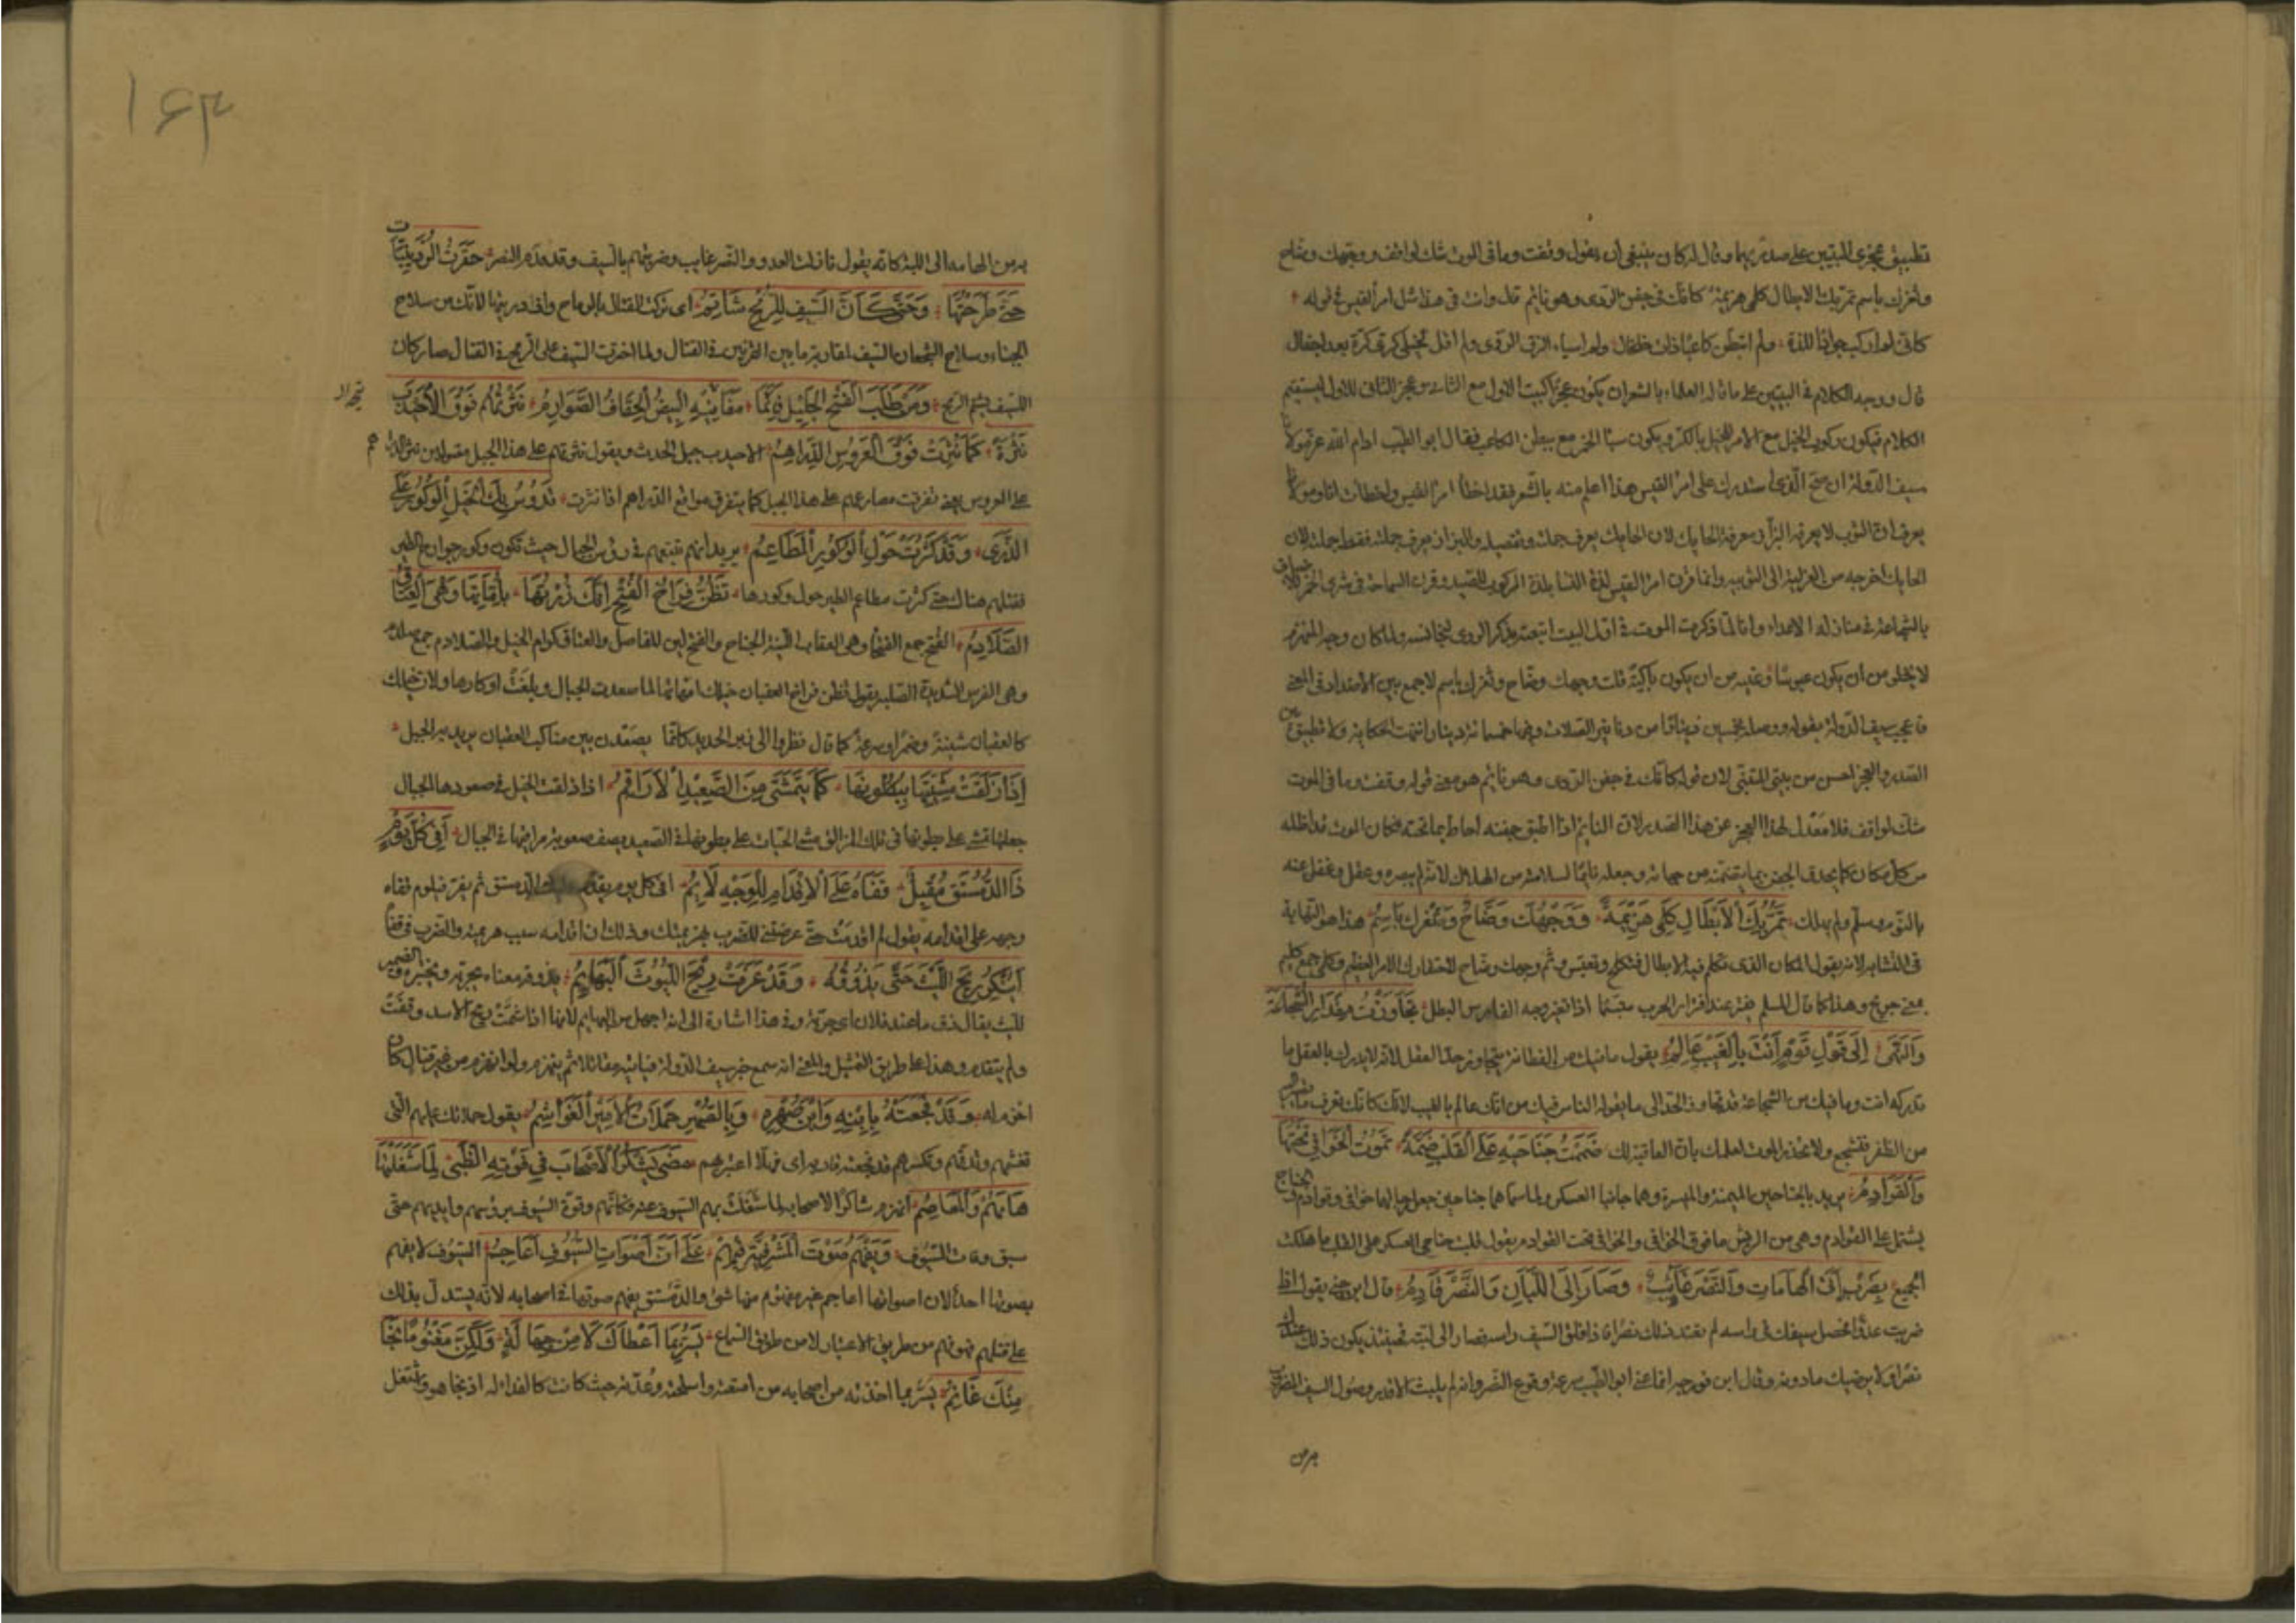 تطبيق عجزى البيتين على صدريهما وقال له كان ينبغى ان يقول وقفت وما فى الموت شك لواقف ووجهك وضاح
وثغرك باسم تمر بك الابطال كلمى هزيمة كانك فى جفن الردى وهو نائم قال وانت فى هذا مثل امرئ القيس فى قوله
كانى لم اركب جوادا للذة ولم اتبطن كاعبا ذات خلخال ولم اسبا الزق الروى ولم اقل لخيلى كرى كرة بعد اجفال
قال ووجه الكلام فى البيتين على ما قاله العلماء بالشعر ان يكون عجز البيت الاول مع الثانى وعجز الثانى للاول ليستقيم
الكلام فيكون ركوب الخيل مع الامر للخيل بالكر ويكون سبا الخمر مع تبطن الكاعب فقال ابو الطيب ادام الله عز مولانا
سيف الدولة ان صح ان الذى استدرك على امرئ القيس هذا اعلم منه بالشعر فقد اخطأ امرؤ القيس واخطات انا ومولانا
يعرف ان الثوب لا يعرفه البزاز معرفة الحايك لان الحايك يعرف جملته وتفصيله والبزاز يعرف جملته فقط لان
الحايك اخرجه من الغزلية الى الثوبية وانما قرن امرؤ القيس لذة النسا بلذة الركوب للصيد وقرن السماحة فى شرى الخمر للاضياف
بالشجاعة فى منازلة الاعداء وانا لما ذكرت الموت فى اول البيت اتبعته بذكر الردى ليجانسه ولما كان وجه المنهزم
لا يخلو من ان يكون عبوسا وعينه من ان يكون باكية قلت ووجهك وضاح وثغرك باسم لاجمع بين الاضداد فى المعنى
فاعجب سيف الدولة بقوله ووصله بخمسين دينارا من دنانير الصلات وفيها خمسمائة دينار انتهت الحكاية ولا تطبيق بين
الصدر والعجز احسن من بيتى المتنبى لان قوله كانك فى جفن الردى وهو نائم هو معنى قوله وقفت وما فى الموت
شك لواقف فلا معدل لهذا العجز عن هذا الصدر لان النائم اذا اطبق جفنه احاط بما تحته فكان الموت قد اظله
من كل مكان كما يحدق الجفن بما يتضمنه من جهاته وجعله نائما لسلامته من الهلاك لانه لم يبصره وغفل عنه
بالنوم وسلم ولم يهلك تَمُرُّ بِكَ الأَبْطَالُ كَلْمَى هَزِيمَةً وَوَجْهُكَ وَضَّاحٌ وَثَغْرُكَ بَاسِمُ هذا هو النهاية
فى التشابه لانه يقول المكان الذى تكلم فيه الابطال فتكلح وتعبس وثم وجهك وضاح لاحتقارك الامر العظيم وكلمى جمع كليم
بمعنى جريح وهذا كما قال المسلم يفتر عند افترار الحرب مبتسما اذا تغير وجه الفارس البطل تَجَاوَزْتَ مِقْدَارَ الشَّجَاعَةِ
وَالنُّهَى إِلَى قَوْلِ قَوْمٍ أَنْتَ بِالغَيْبِ عَالِمُ يقول ما فيك من الفطانة يتجاوز حد العقل لانه لا يدرك بالعقل ما
تدركه انت وما فيك من الشجاعة قد تجاوز الحد الى ما يقوله الناس فيك من انك عالم بالغيب لانك كانك تعرف ما
من الظفر فتشجع ولا تحذر الموت لعلمك بان العاقبة لك ضَمَمْتَ جَنَاحَيْهِمْ عَلَى القَلْبِ ضَمَّةً تَمُوتُ الخَوَافِي تَحْتَهَا
وَالقَوَادِمُ يريد بالجناحين الميمنة والميسرة وهما جانبا العسكر ولما سماهما جناحين جعل رجالهما خوافى وقوادم والجناح
يشتمل على القوادم وهى من الريش ما فوق الخوافى والخوافى تحت القوادم يقول قلبت جناحى العسكر على القلب فاهلكت
الجميع بِضَرْبٍ أَتَى الهَامَاتِ وَالنَّصْرُ غَائِبٌ وَصَارَ إِلَى اللَّبَّاتِ وَالنَّصْرُ قَادِمُ قال ابن جنى يقول اذا
ضربت عدوا فحصل سيفك فى راسه لم تعتد ذلك نصرا فاذا فلق السيف راسه فصار الى لبته فحينئذ يكون ذلك عندك
نصرا ولا يرضيك ما دونه وقال ابن فورجه انما عنى ابو الطيب سرعة وقوع النصر وانه لم يلبث الا قدر وصول السيف المضروب
به من
١٦٣
به من الهامة الى اللبة كانه يقول نازلت العدو والنصر غايب وضربتهم بالسيف وقد قدم النصر حَقَرْتَ الرُّدَيْنِيَّاتِ
حَتَّى طَرَحْتَهَا وَحَتَّى كَأَنَّ السَّيْفَ لِلرُّمْحِ شَاتِمُ اى تركت القتال بالرماح وازدريتها لانك من سلاح
الجبناء وسلاح الشجعان السيف لمقاربة ما بين القرنين فى القتال ولما اخترت السيف على الرمح فى القتال صار كان
السيف يشتم الرمح وَمَنْ طَلَبَ الفَتْحَ الجَلِيلَ فَإِنَّمَا مَفَاتِيحُهُ البِيضُ الخِفَافُ الصَّوَارِمُ نَثَرْتَهُمُ فَوْقَ الأُحَيْدِبِ
نَثْرَةً كَمَا نُثِرَتْ فَوْقَ العَرُوسِ الدَّرَاهِمُ الاحيدب جبل الحدث ويقول نثرتهم على هذا الجبل مقتولين نثر الدراهم
على العروس يعنى تفرقت مصارعهم على هذا الجبل كما يتفرق مواقع الدراهم اذا نثرت تَدُوسُ بِكَ الخَيْلُ الوُكُورَ عَلَى
الذُّرَى وَقَدْ كَثُرَتْ حَوْلَ الوُكُورِ المَطَاعِمُ يريد انهم تتبعهم فى رؤس الجبال حيث تكون وكور جوارح الطير
فتقتلهم هناك حتى كثرت مطاعم الطير حول وكورها تَظُنُّ فِرَاخُ الفُتْخِ أَنَّكَ زُرْتَهَا بِأُمَّاتِهَا وَهْيَ العِتَاقُ
الصَّلَادِمُ الفتخ جمع الفتخاء وهى العقاب اللينة الجناح والفتخ لين المفاصل والعتاق كرام الخيل والصلادم جمع صلدم
وهى الفرس الشديدة الصلبة يقول تظن فراخ العقبان خيلك امهاتها لما صعدت الجبال وبلغت اوكارها ولان خيلك
كالعقبان شدة وضمرا وسرعة كما قال نظروا الى زبر الحديد كانما يصعدن بين مناكب العقبان يريد به الجبل
إِذَا زَلِقَتْ مَشَّيْتَهَا بِبُطُونِهَا كَمَا تَتَمَشَّى فِي الصَّعِيدِ الأَرَاقِمُ اذا زلقت الخيل فى صعودها الجبال
جعلتها تمشى على بطونها فى تلك المزالق مشى الحيات على بطونها فى الصعيد يصف صعوبة مراقيها فى الجبال أَفِي كُلِّ يَوْمٍ
ذَا الدُّمُسْتُقُ مُقْدِمٌ قَفَاهُ عَلَى الإِقْدَامِ لِلْوَجْهِ لَائِمُ افى كل يوم يقدم عليك الدمستق ثم يفر فيلوم قفاه
وجهه على اقدامه يقول لم اقدمت حتى عرضتنى للضرب بهزيمتك وذلك ان اقدامه سبب هزيمته والضرب فى قفاه
أَيُنْكِرُ رِيحَ اللَّيْثِ حَتَّى يَذُوقَهُ وَقَدْ عَرَفَتْ رِيحَ اللُّيُوثِ البَهَائِمُ يذوقه معناه يجربه ويختبره والضمير
لليث يقال ذق ما عند فلان اى جربه وفى هذا اشارة الى انه اجهل من البهائم لانها اذا شمت ريح الاسد وقفت
ولم يتقدم وهذا على طريق التمثيل والمعنى انه سمع خبر سيف الدولة فياتيه مقاتلا ثم ينهزم ولو انهزم من غير قتال كان
احزم له وَقَدْ فَجَعَتْهُ بِابْنِهِ وَابْنِ صِهْرِهِ وَبِالصِّهْرِ حَمْلَاتُ الأَمِيرِ الغَوَاشِمُ يقول حملاتك عليهم التى
تغشمهم وتدقهم وتكسرهم قد فجعته باقاربه اى فهلا اعتبر بهم مَضَى يَشْكُرُ الأَصْحَابَ فِي فَوْتِهِ الظُّبَى لِمَا شَغَلَتْهَا
هَامُهُمْ وَالمَعَاصِمُ انهزم شاكرا لاصحابه لما شغلت بهم السيوف عنه فكانهم وقوه السيوف برؤسهم وايديهم حتى
سبق وفات السيوف وَيَفْهَمُ صَوْتَ المَشْرَفِيَّةِ فِيهِمُ عَلَى أَنَّ أَصْوَاتَ السُّيُوفِ أَعَاجِمُ السيوف لا يفهم
بصوتها احد لان اصواتها اعاجم غير مفهوم منها شئ والدمستق يفهم صوتها فى اصحابه لانه يستدل بذلك
على قتلهم فهو فهم من طريق الاعتبار لا من طريق السماع يُسَرُّ بِمَا أَعْطَاكَ لَا مِنْ جَهَالَةٍ وَلَكِنَّ مَغْنُومًا نَجَا
مِنْكَ غَانِمُ يسر بما اخذته من اصحابه من امتعته واسلحته وعدته حيث كانت كالفداء له اذ نجا هو واشتغل